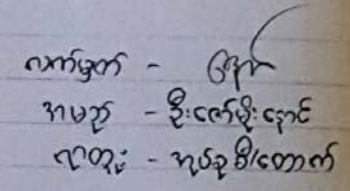 လက်မှတ် -
အမည် - ဦးဇော်မိုးနောင်
ရာထူး - အုပ်စုမှူး/တောက်